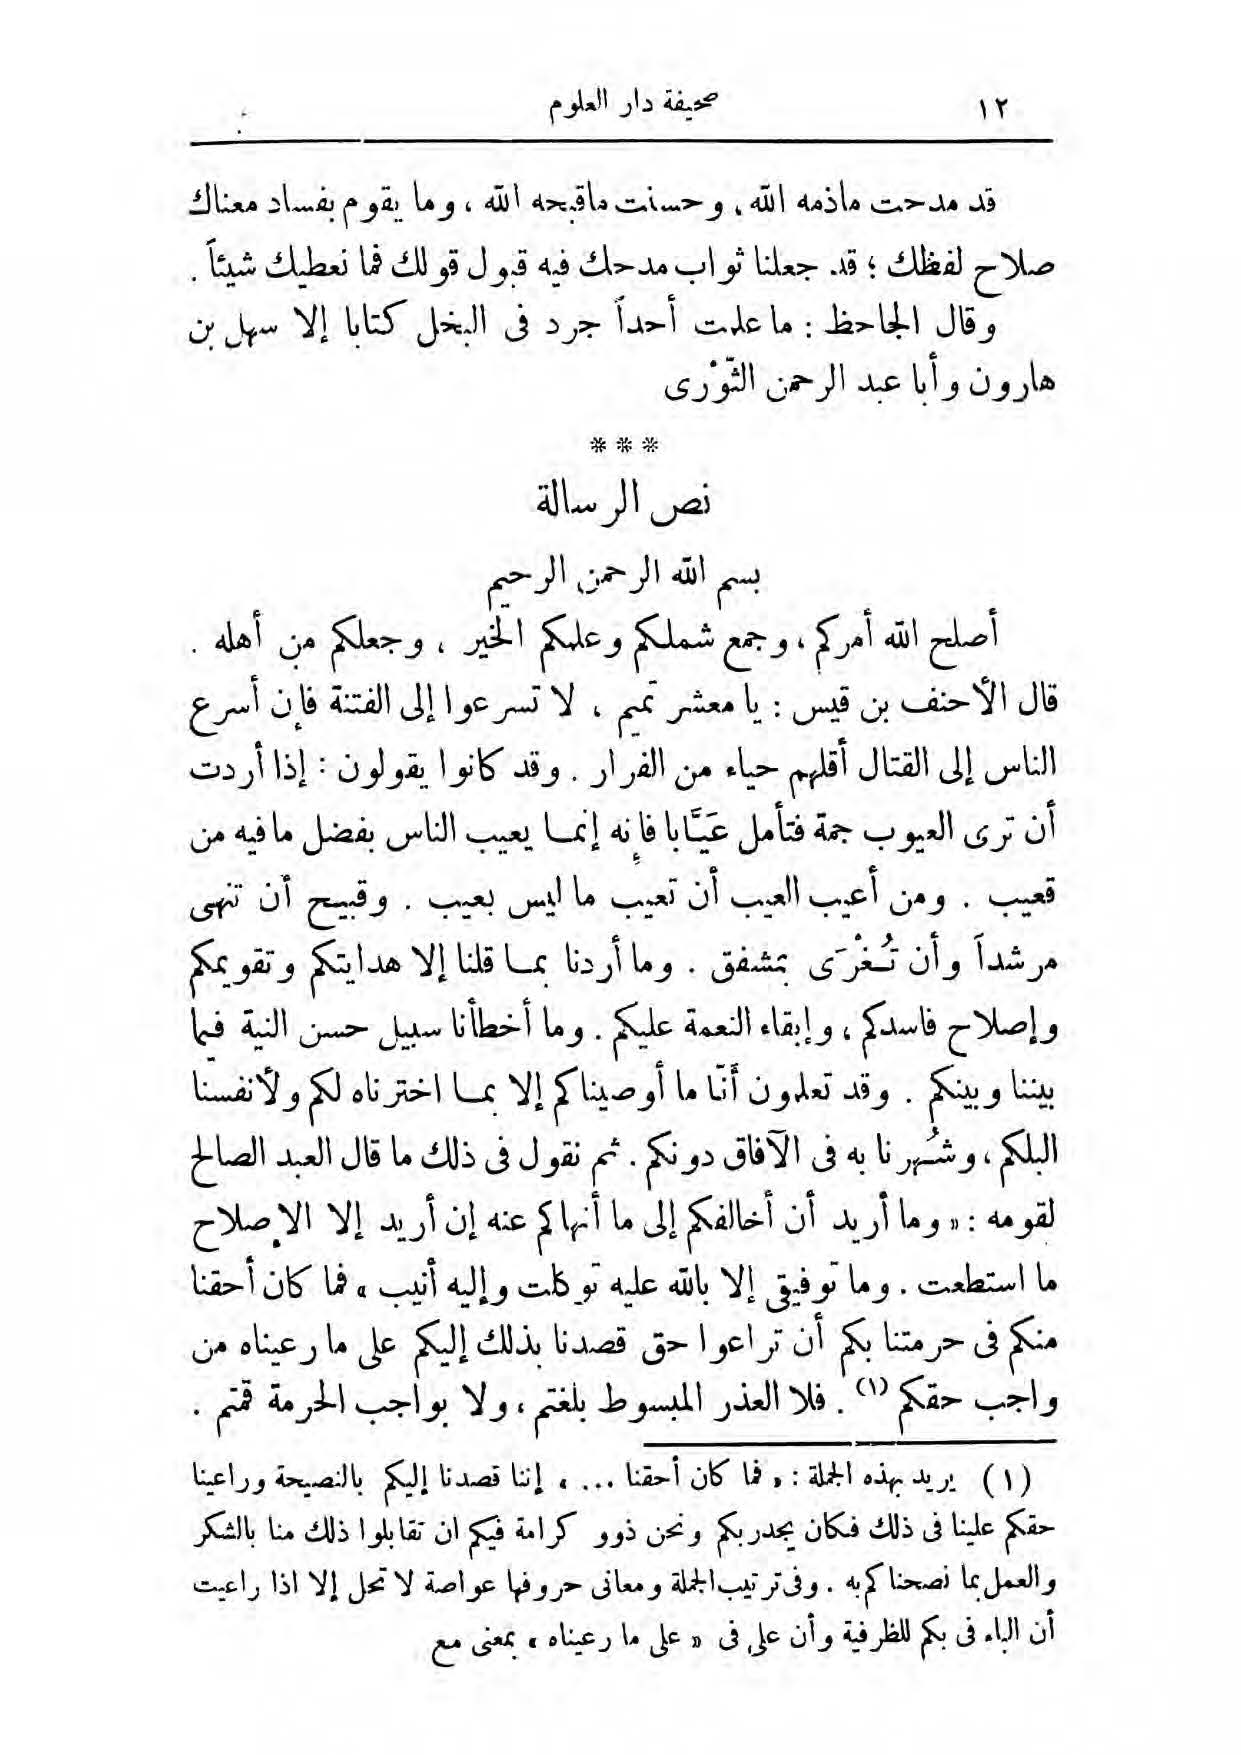 ١٢ صحيفة دار العلوم
قد مدحت ماذمه الله، وحسنت ماقبحه الله، وما يقوم بفساد معناك
صلاح لفظك؛ قد جعلنا ثواب مدحك فيه قبول قولك فما نعطيك شيئاً.
وقال الجاحظ: ما علمت أحداً جرد فى البخل كتابا إلا سهل بن
هارون وأبا عبد الرحمن الثّوْرى
***
نص الرسالة
بسم الله الرحمن الرحيم
أصلح الله أمركم، وجمع شملكم وعلمكم الخير، وجعلكم من أهله.
قال الأحنف بن قيس: يا معشر تميم، لا تسرعوا إلى الفتنة فإن أسرع
الناس إلى القتال أقلهم حياء من الفرار. وقد كانوا يقولون: إذا أردت
أن ترى العيوب جمة فتأمل عَيَّابا فإنه إنما يعيب الناس بفضل مافيه من
قعيب. ومن أعيب العيب أن تعيب ما ليس بعيب. وقبيح أن تنهى
مرشداً وأن تُغْرَى بمشفق. وما أردنا بما قلنا إلا هدايتكم وتقويمكم
وإصلاح فاسدكم، وإبقاء النعمة عليكم. وما أخطأنا سبيل حسن النية فيما
بيننا وبينكم. وقد تعلمون أنّا ما أوصيناكم إلا بما اخترناه لكم ولأنفسنا
البلكم، وشُهرنا به فى الآفاق دونكم. ثم نقول فى ذلك ما قال العبد الصالح
لقومه: «وما أريد أن أخالفكم إلى ما أنهاكم عنه إن أريد إلا الإصلاح
ما استطعت. وما توفيقى إلا بالله عليه توكلت وإليه أنيب» فما كان أحقنا
منكم فى حرمتنا بكم أن تراعوا حق قصدنا بذلك إليكم على ما رعيناه من
واجب حقكم (١). فلا العذر المبسوط بلغتم، ولا بواجب الحرمة قمتم.
(١) يريد بهذه الجملة: «فما كان أحقنا ...» إننا قصدنا إليكم بالنصيحة وراعينا
حقكم علينا فى ذلك فكان يجدر بكم ونحن ذوو كرامة فيكم ان تقابلوا ذلك منا بالشكر
والعمل بما نصحناكم به. وفى ترتيب الجملة ومعانى حروفها عواصة لا تحل إلا اذا راعيت
أن الباء فى بكم للظرفية وأن على فى «على ما رعيناه» بمعنى مع